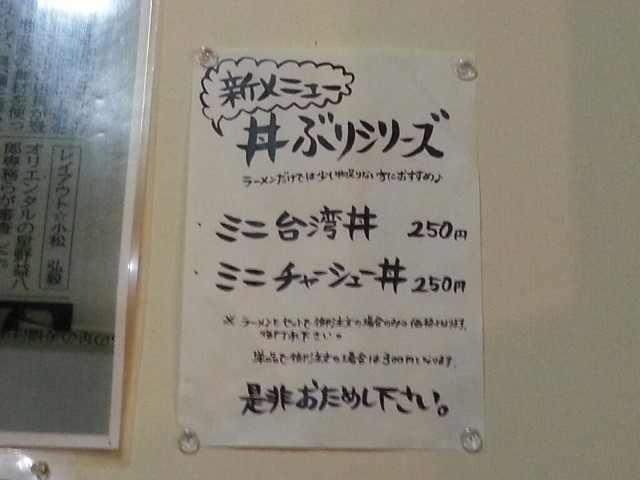 新メニュー
丼ぶりシリーズ
ラーメンだけでは少し物足りない方におすすめ♪
・ミニ台湾丼 250円
・ミニチャーシュー丼 250円
※ ラーメンとセットで御注文の場合のみの価格となります。
御了承下さい。
単品で御注文の場合は300円となります。
是非おためし下さい。
レイアウト☆小松 弘毅
オリエンタルの星野益八
郎専務らが審査した。